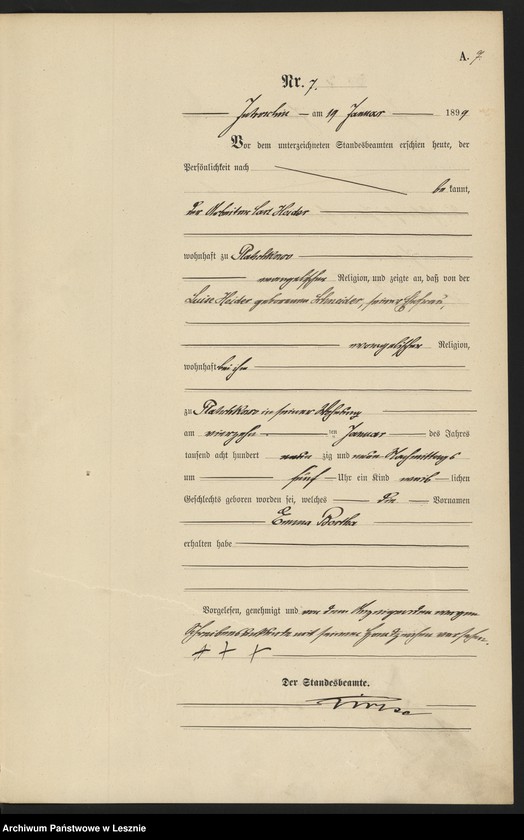 A. 7.
Nr. 7.
am 19 Januar 1899
Vor dem unterzeichneten Standesbeamten erschien heute, der
Persönlichkeit nach
be kannt,
der Arbeiter Carl
wohnhaft zu
evangelischer Religion, und zeigte an, daß von der
Luise geborenen Schneider, seiner Ehefrau,
evangelischer Religion,
wohnhaft bei ihm
zu in seiner Wohnung
am vierzehn ten Januar des Jahres
tausend acht hundert neun zig und neun Nachmittags
um fünf Uhr ein Kind weib lichen
Geschlechts geboren worden sei, welches die Vornamen
Emma
erhalten habe
Vorgelesen, genehmigt und von dem Anzeigenden wegen
mit seinem Handzeichen versehen.
+ + +
Der Standesbeamte.
Archiwum Państwowe w Lesznie